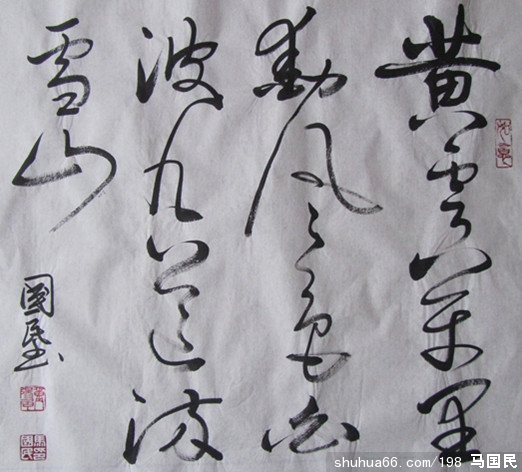 黄雲萬里
動風色白
波九道流
雪山
國民书
shuhua66.com/198 马国民